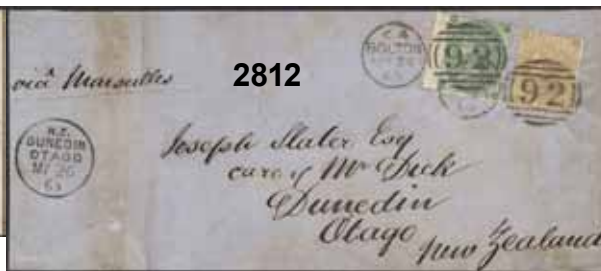 viâ Marseilles
2812
BOLTON
92
92
N.Z.
DUNEDIN
OTAGO
MY 26
Joseph Slater Esq
care of Mr Dick
Dunedin
Otago
New Zealand